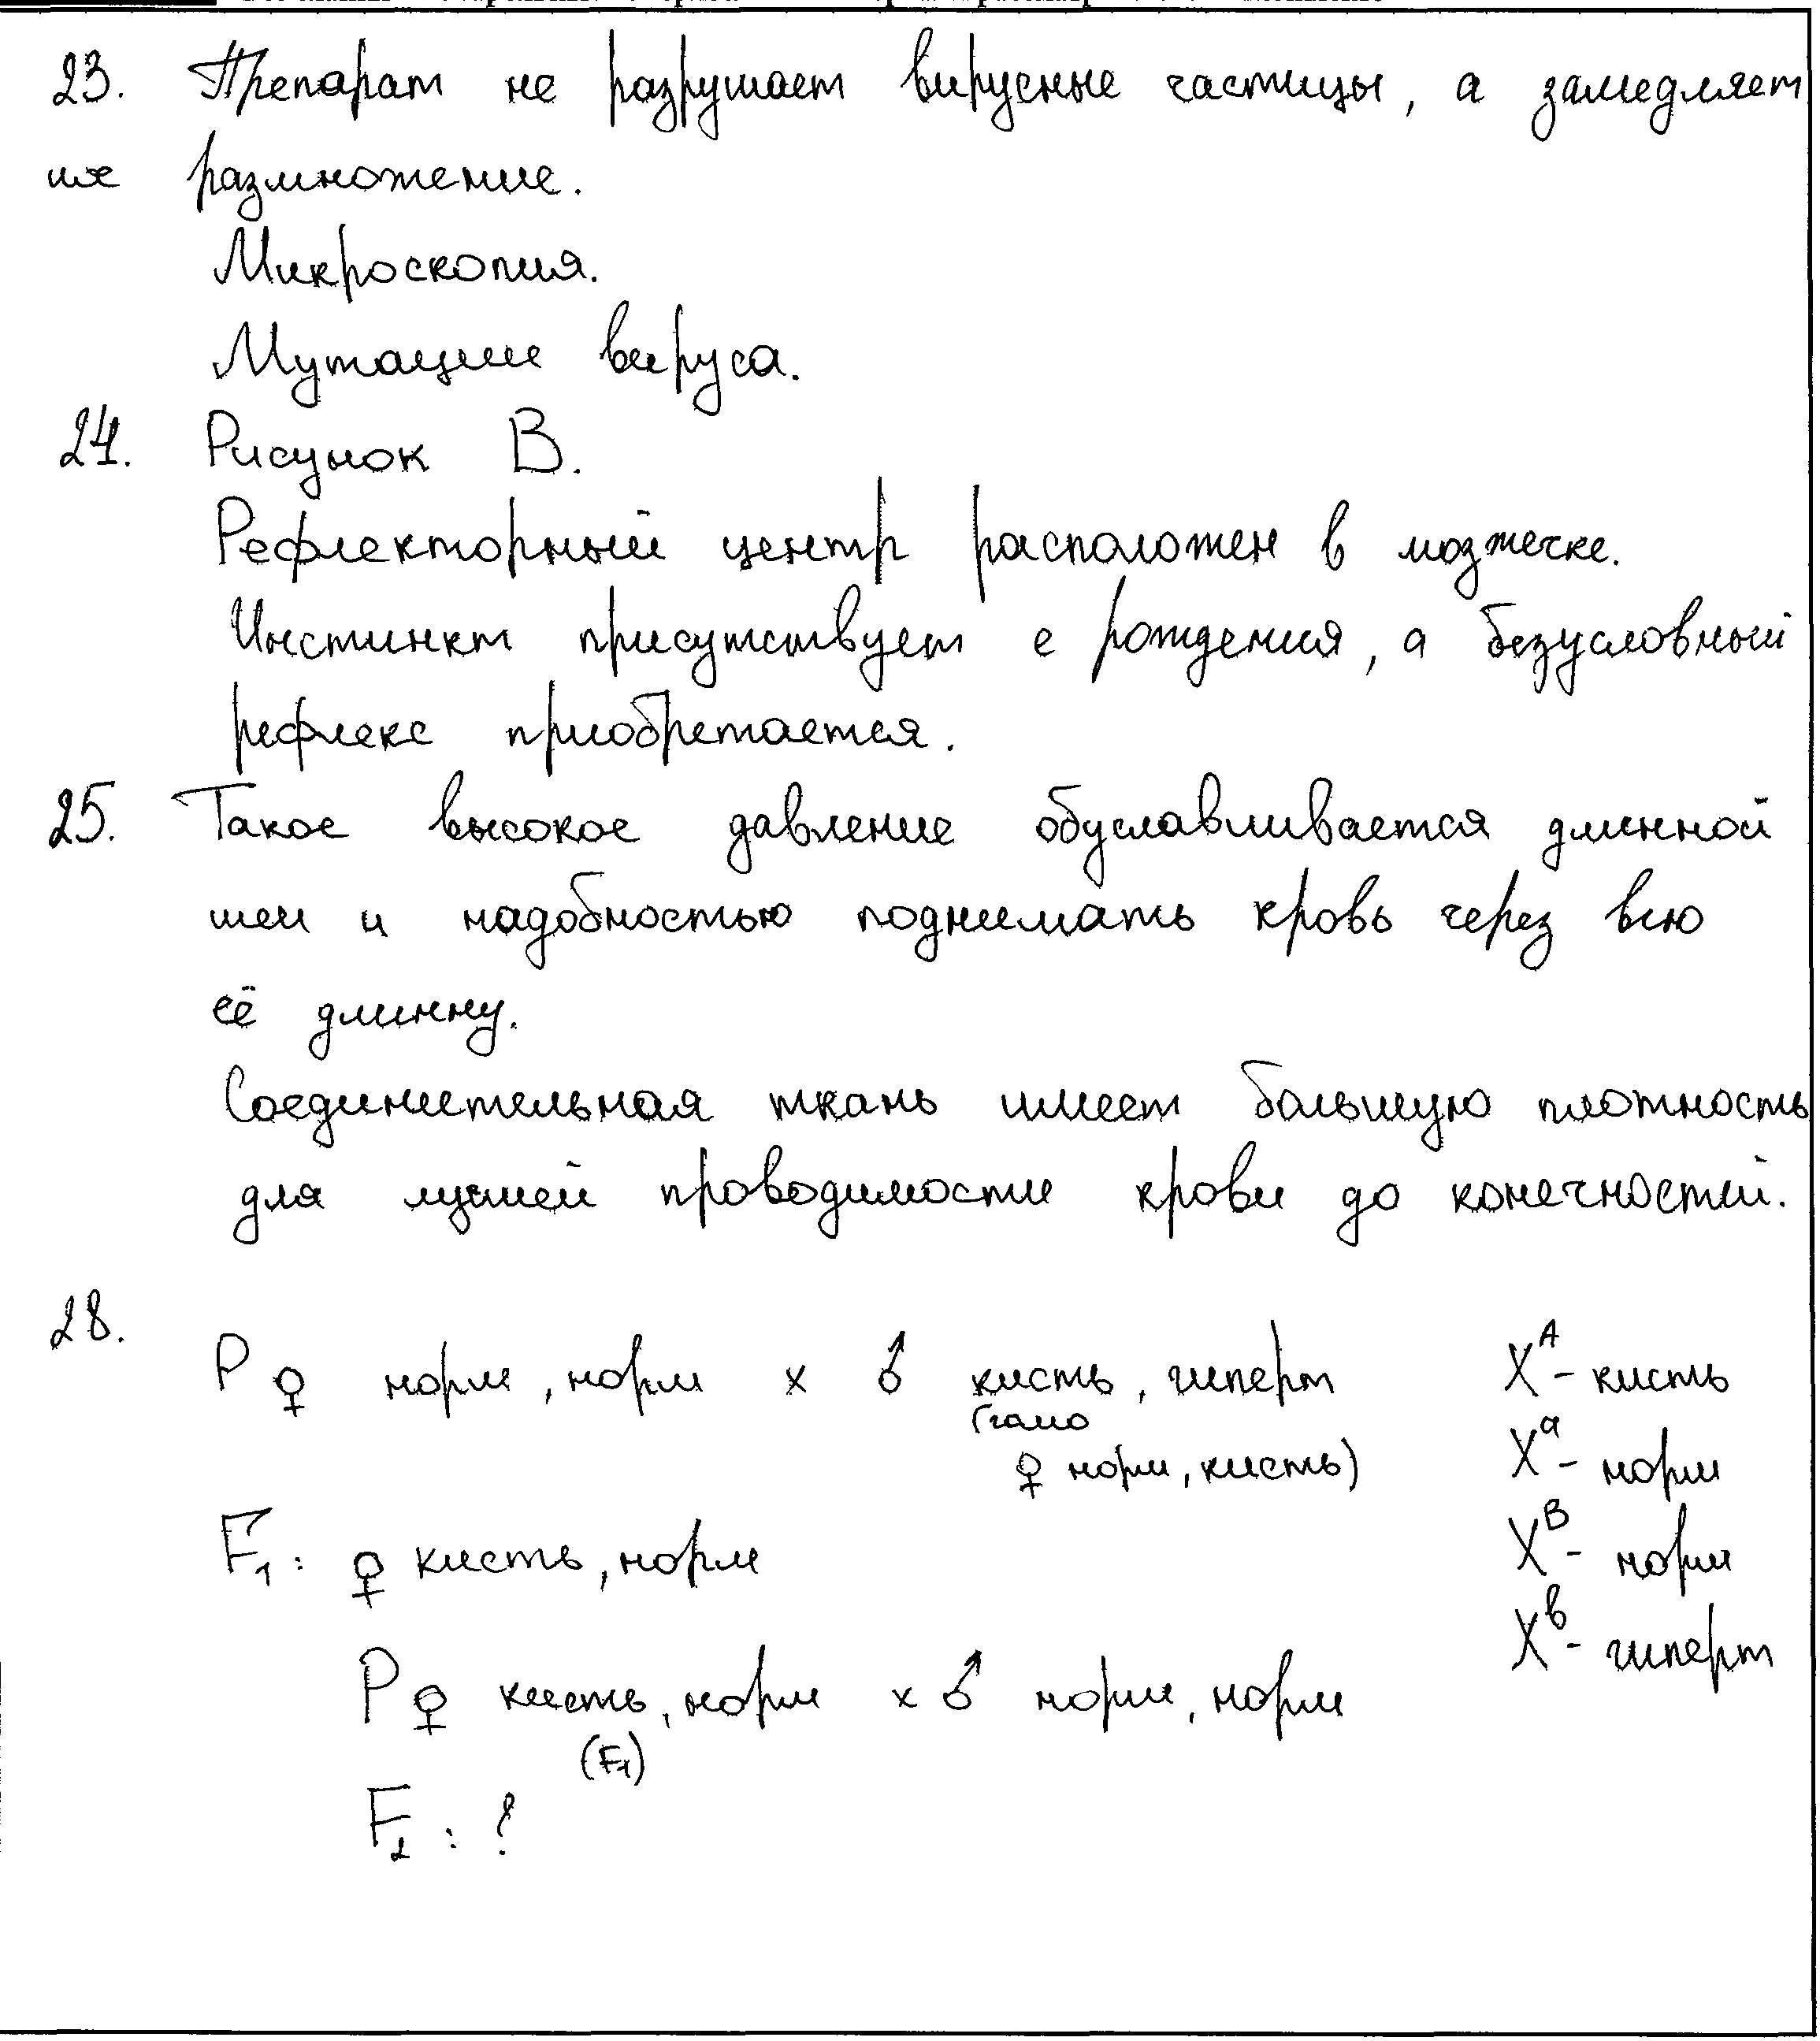 23. Препарат не разрушает вирусные частицы, а замедляет
их размножение.
Микроскопия.
Мутации вируса.
24. Рисунок В.
Рефлекторный центр расположен в мозжечке.
Инстинкт присутствует с рождения, а безусловный
рефлекс приобретается.
25. Такое высокое давление обуславливается длинной
шеи и надобностью поднимать кровь через всю
её длинну.
Соединительная ткань имеет большую плотность
для лучшей проводимости крови до конечностей.
28.
P ♀ норм, норм x ♂ кисть, гиперт X^A - кисть
(гамо
♀ норм, кисть) X^a - норм
F₁: ♀ кисть, норм X^B - норм
X^b - гиперт
P ♀ кисть, норм x ♂ норм, норм
(F₁)
F₂: ?